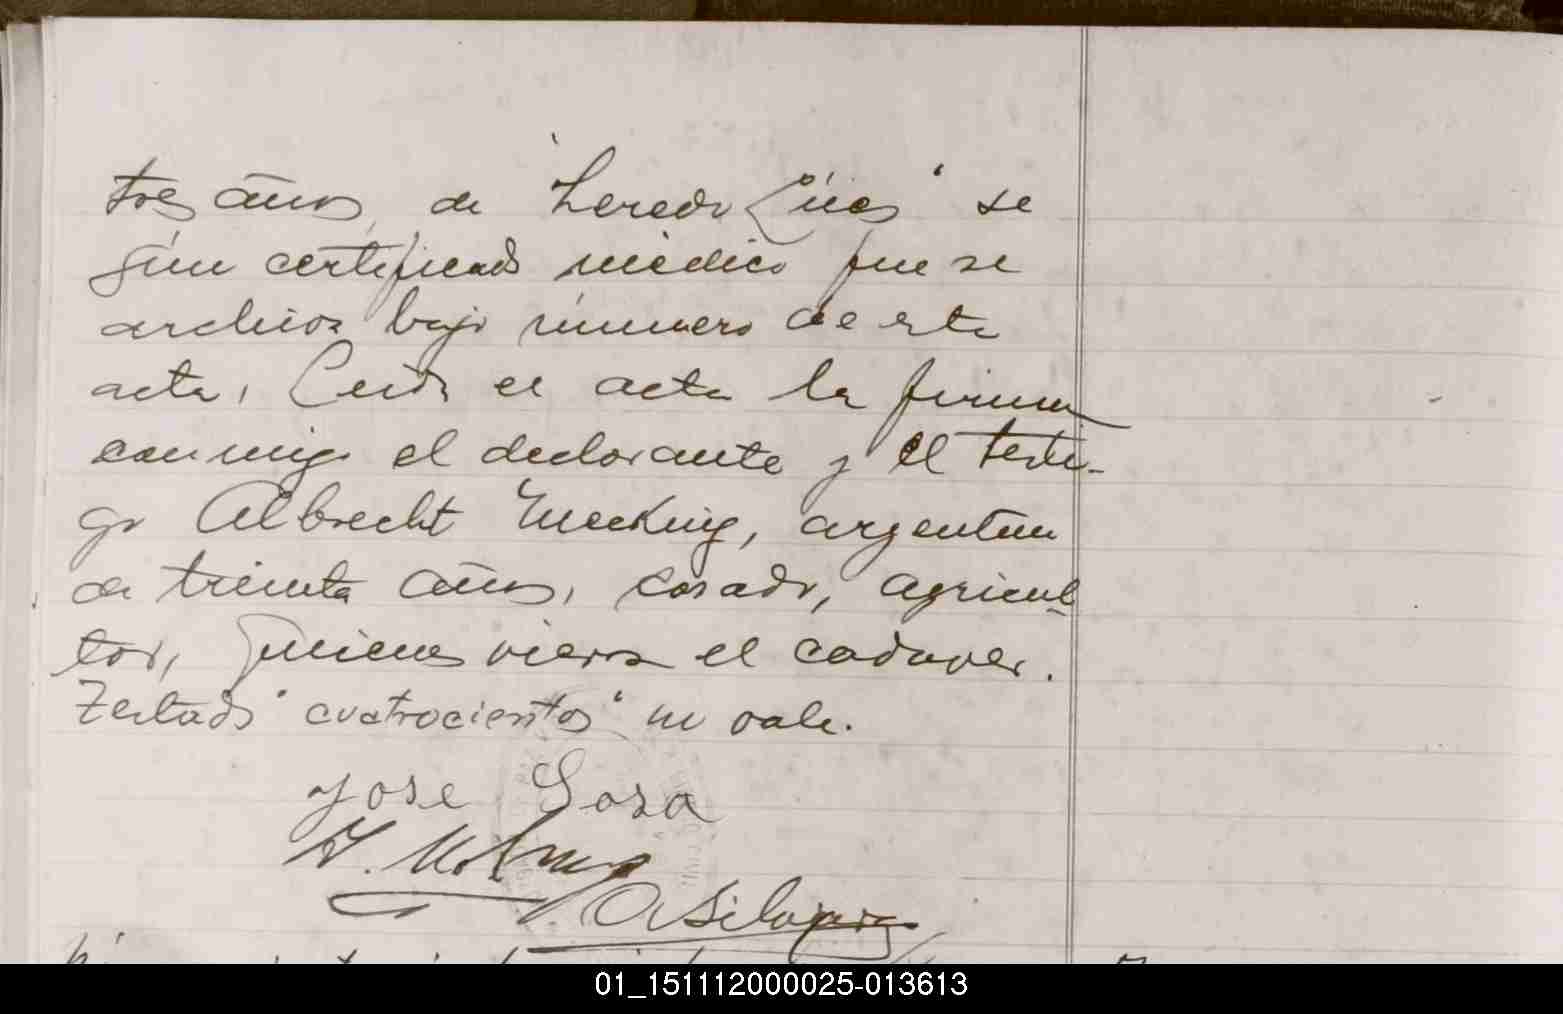 tres años, de "heredo lúes" se
gún certificado médico que se
archiva bajo número de esta
acta. Leída el acta la firman
conmigo el declarante y el testi-
go Albrecht Meeking, argentino
de treinta años, casado, agricul-
tor, quienes vieron el cadaver.
Testado "cuatrocientos" no vale.
Jose Sosa
01_151112000025-013613